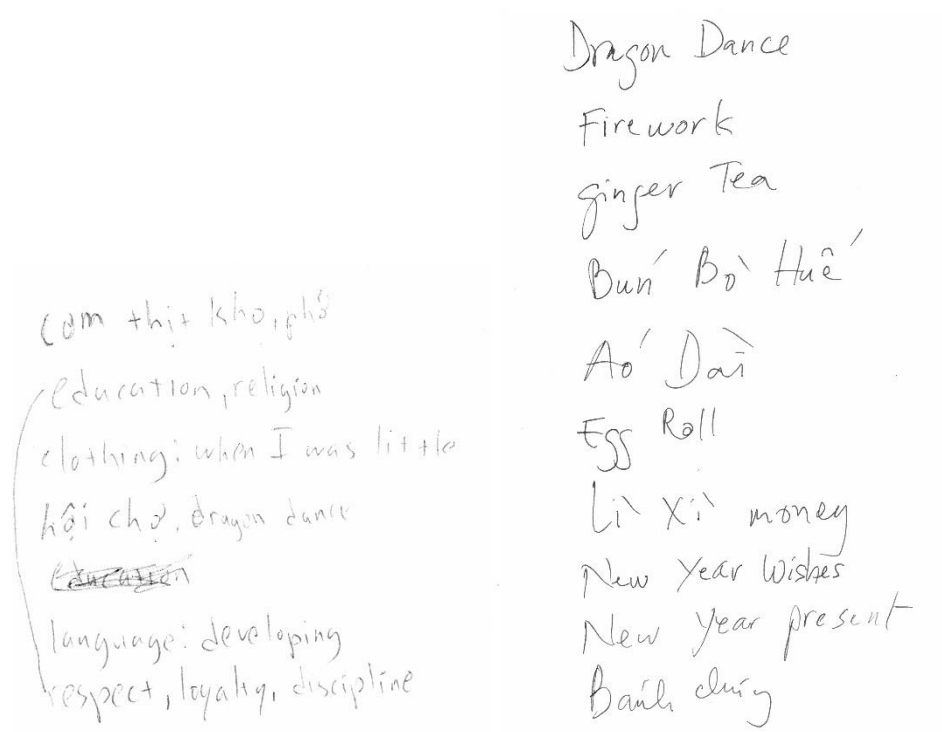 cơm thịt kho, phở
education, religion
clothing: when I was little
hội chợ, dragon dance
education
language: developing
respect, loyalty, discipline
Dragon Dance
Firework
ginger Tea
Bún Bò Huế
Aó Dài
Egg Roll
Lì Xì money
New Year Wishes
New Year present
Bánh chưng